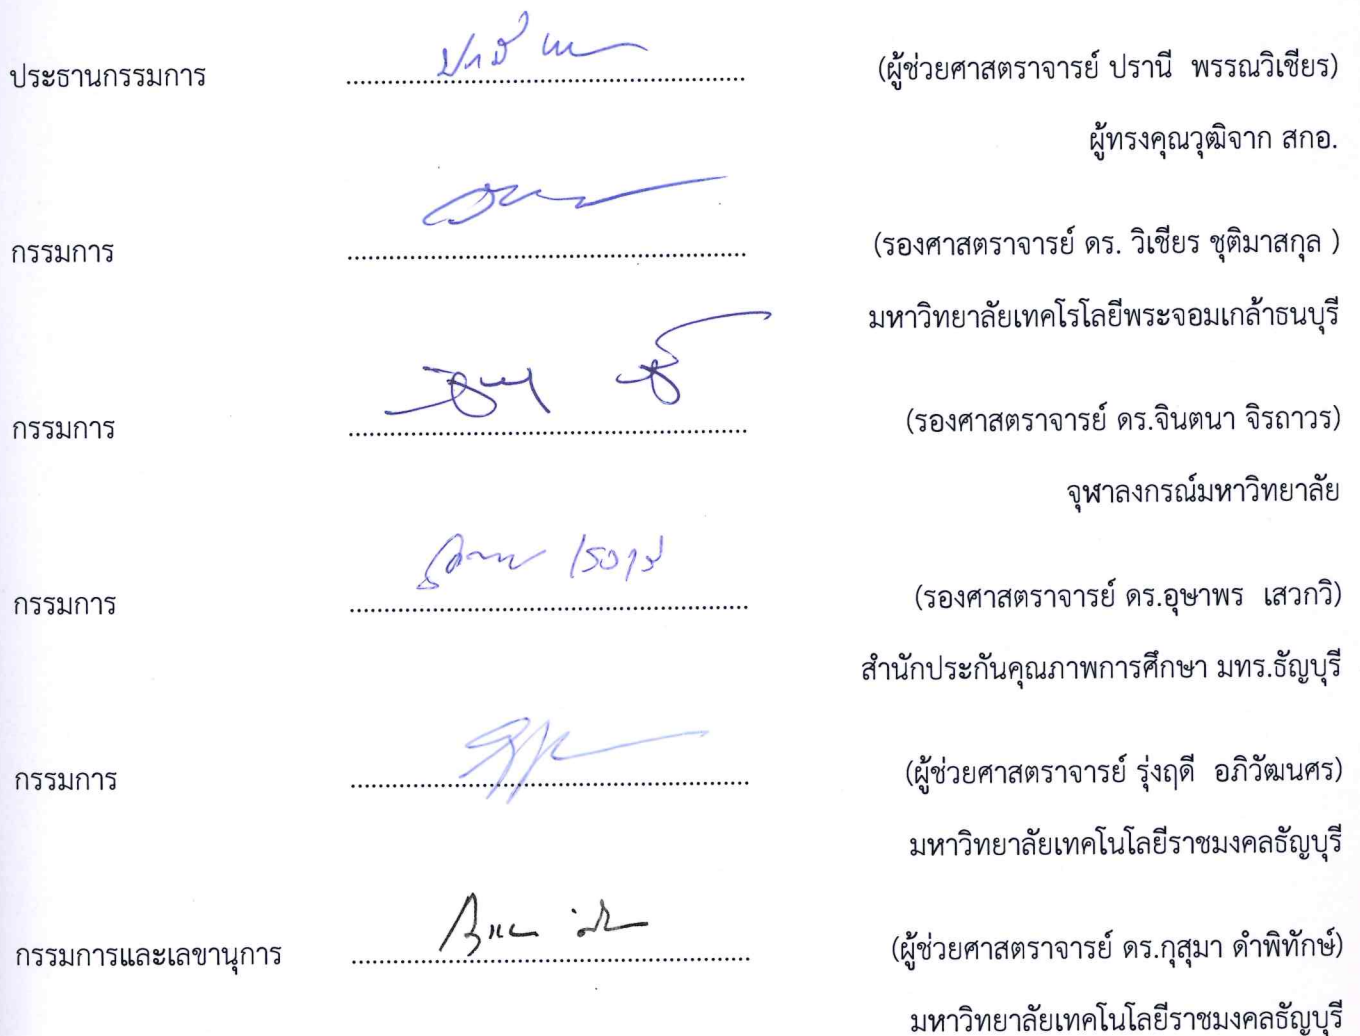 ประธานกรรมการ ................................................................ (ผู้ช่วยศาสตราจารย์ ปรานี พรรณวิเชียร)
ผู้ทรงคุณวุฒิจาก สกอ.
กรรมการ ................................................................ (รองศาสตราจารย์ ดร. วิเชียร ชุติมาสกุล )
มหาวิทยาลัยเทคโรโลยีพระจอมเกล้าธนบุรี
กรรมการ ................................................................ (รองศาสตราจารย์ ดร.จินตนา จิรถาวร)
จุฬาลงกรณ์มหาวิทยาลัย
กรรมการ ................................................................ (รองศาสตราจารย์ ดร.อุษาพร เสวกวิ)
สำนักประกันคุณภาพการศึกษา มทร.ธัญบุรี
กรรมการ ................................................................ (ผู้ช่วยศาสตราจารย์ รุ่งฤดี อภิวัฒนศร)
มหาวิทยาลัยเทคโนโลยีราชมงคลธัญบุรี
กรรมการและเลขานุการ ................................................................ (ผู้ช่วยศาสตราจารย์ ดร.กุสุมา ดำพิทักษ์)
มหาวิทยาลัยเทคโนโลยีราชมงคลธัญบุรี